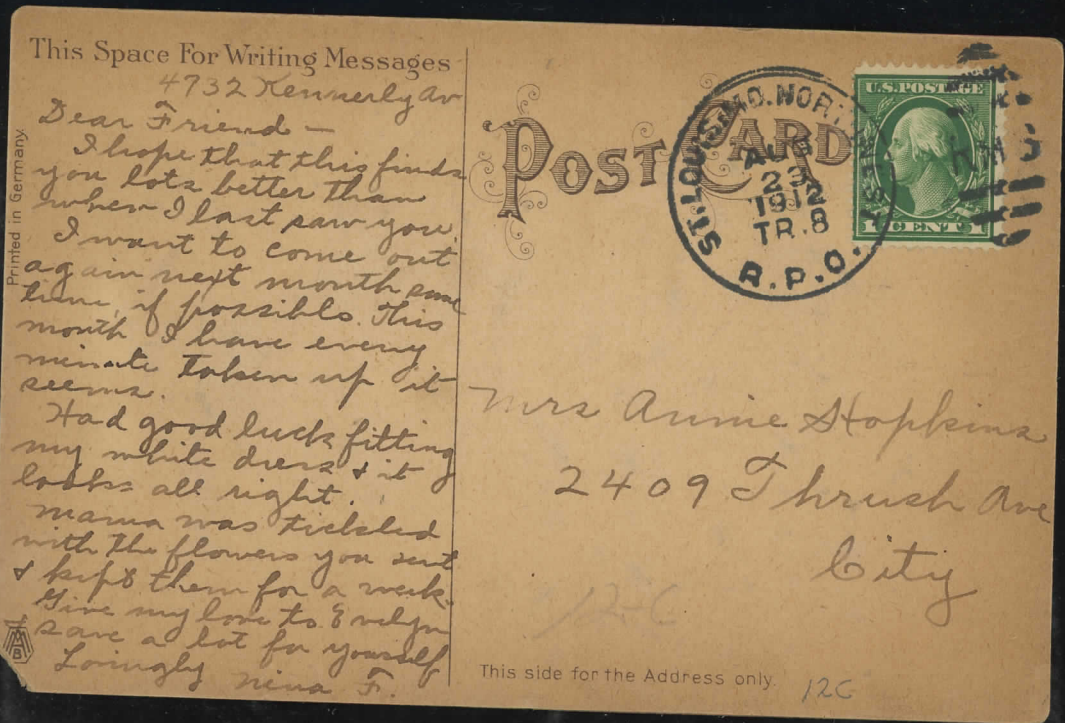 This Space For Writing Messages
4732 Kennerly Av
Dear Friend —
I hope that this finds
you lots better than
when I last saw you.
I want to come out
again next month some
time, if possible. This
month I have every
minute taken up it
seems.
Had good luck fitting
my white dress & it
looks all right.
Mama was tickled
with the flowers you sent
& kept them for a week.
Give my love to Evelyn
save a lot for yourself
Lovingly Nina F.
Printed in Germany.
POST CARD
ST. LOUIS, MO. NORTH
AUG
29
1912
TR.8
R.P.O.
U.S. POSTAGE
1 CENT 1
Mrs Annie Hopkins
2409 Thrush Ave
City
This side for the Address only.
12C